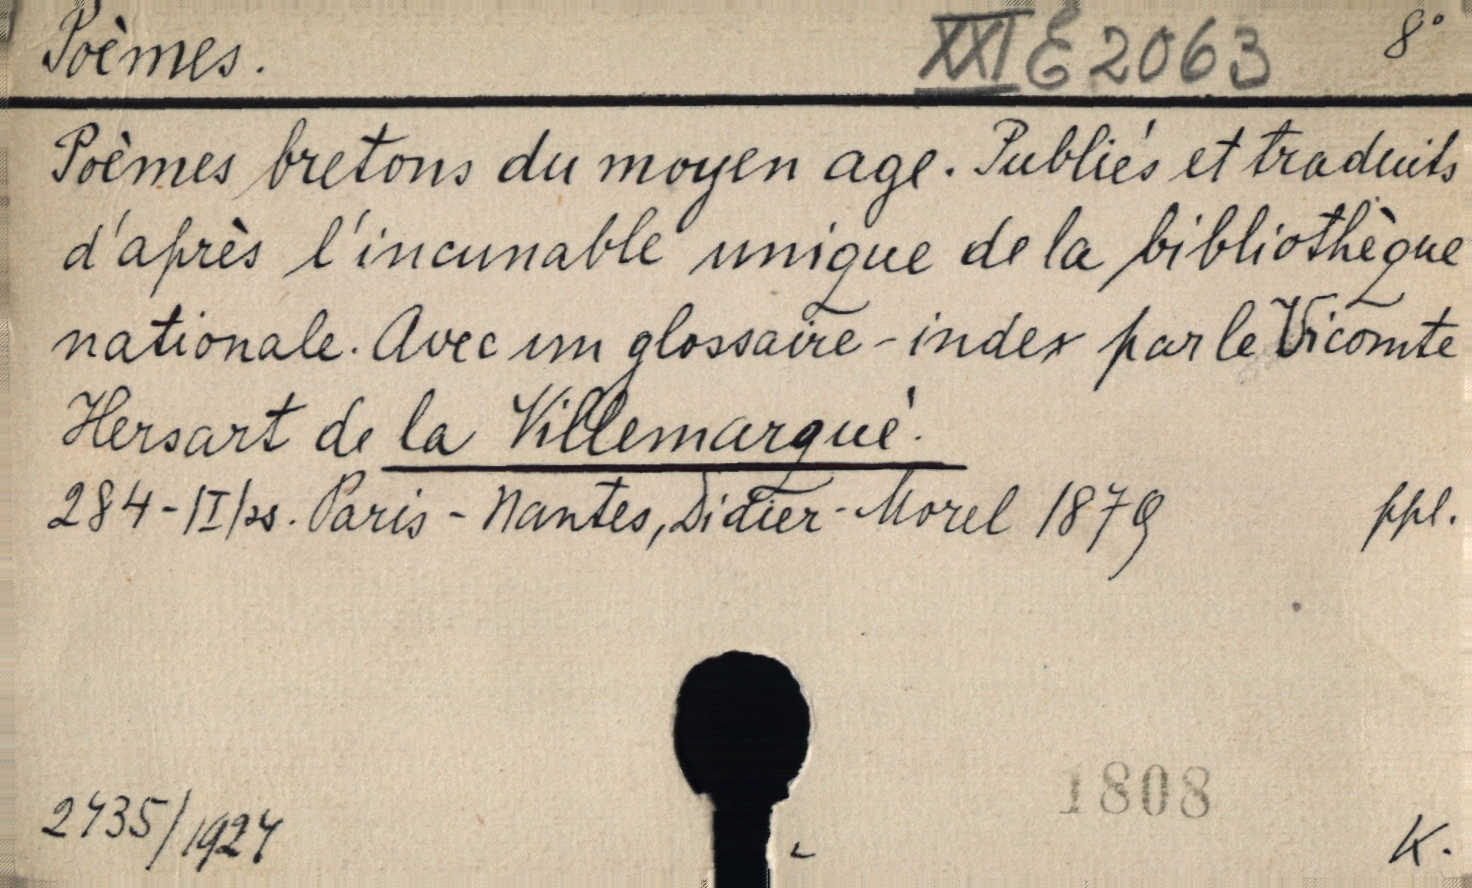 Poèmes. XXI E 2063 8°
Poèmes bretons du moyen age. Publiés et traduits
d'après l'incunable unique de la bibliothèque
nationale. Avec un glossaire-index par le Vicomte
Hersart de la Villemarqué.
Paris - Nantes, Didier-Morel 1879 ppl.
1808
K.